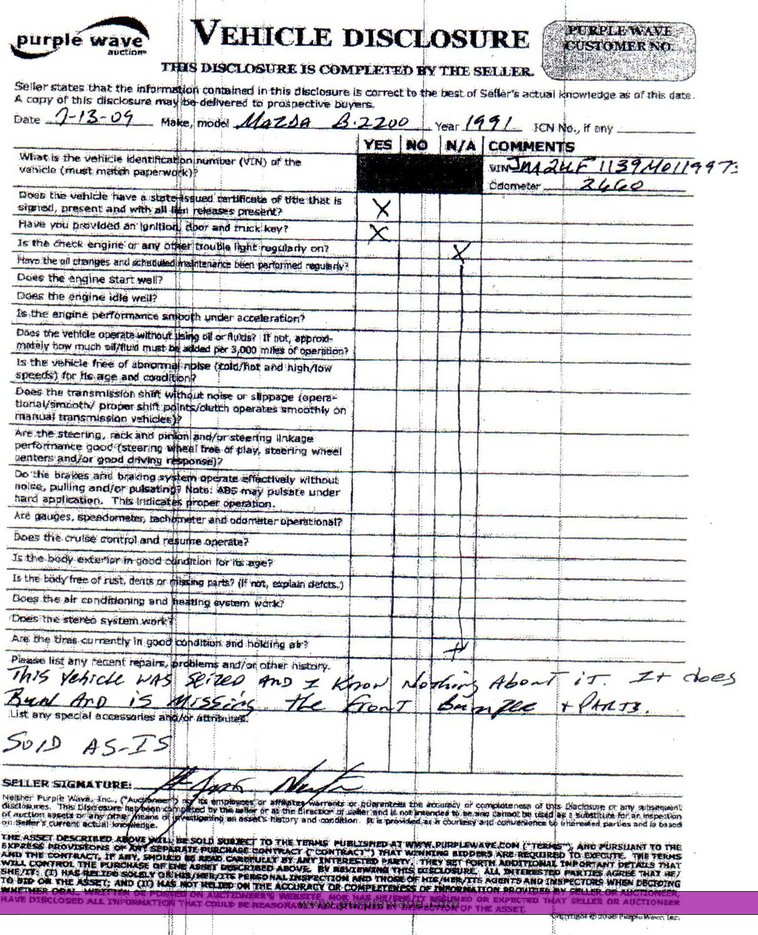 purple wave
auction
VEHICLE DISCLOSURE
PURPLE WAVE
CUSTOMER NO.
THIS DISCLOSURE IS COMPLETED BY THE SELLER.
Seller states that the information contained in this disclosure is correct to the best of Seller's actual knowledge as of this date.
A copy of this disclosure may be delivered to prospective buyers.
Date 7-13-09 Make, model MAZDA B-2200 Year 1991 ICN No., if any
YES NO N/A COMMENTS
What is the vehicle identification number (VIN) of the
vehicle (must match paperwork)?
VIN
Odometer 2660
Does the vehicle have a state-issued certificate of title that is
signed, present and with all lien releases present? X
Have you provided an ignition, door and truck key? X
Is the check engine or any other trouble light regularly on? X
Have the oil changes and scheduled maintenance been performed regularly?
Does the engine start well?
Does the engine idle well?
Is the engine performance smooth under acceleration?
Does the vehicle operate without using oil or fluids? If not, approxi-
mately how much oil/fluid must be added per 3,000 miles of operation?
Is the vehicle free of abnormal noise (cold/hot and high/low
speeds) for its age and condition?
Does the transmission shift without noise or slippage (opera-
tional/smooth/ proper shift points/clutch operates smoothly on
manual transmission vehicles)?
Are the steering, rack and pinion and/or steering linkage
performance good (steering wheel free of play, steering wheel
centers and/or good driving response)?
Do the brakes and braking system operate effectively without
noise, pulling and/or pulsating? Note: ABS may pulsate under
hard application. This indicates proper operation.
Are gauges, speedometer, tachometer and odometer operational?
Does the cruise control and resume operate?
Is the body exterior in good condition for its age?
Is the body free of rust, dents or missing parts? (If not, explain defcts.)
Does the air conditioning and heating system work?
Does the stereo system work?
Are the tires currently in good condition and holding air?
Please list any recent repairs, problems and/or other history.
This vehicle was seized and I know nothing about it. It does
Run and is missing the front bumper + parts.
List any special accessories and/or attributes.
Sold AS-IS
SELLER SIGNATURE:
Neither Purple Wave, Inc., ("Auctioneer") nor its employees or affiliates warrants or guarantees the accuracy or completeness of this Disclosure or any subsequent
disclosures. This Disclosure has been completed by the seller or at the direction of seller and is not intended to be and cannot be used as a substitute for an inspection
of auction assets or any other means of investigating an asset's history and condition. It is provided as a courtesy and convenience to interested parties and is based
on Seller's current actual knowledge.
THE ASSET DESCRIBED ABOVE WILL BE SOLD SUBJECT TO THE TERMS PUBLISHED AT WWW.PURPLEWAVE.COM ("TERMS"), AND PURSUANT TO THE
EXPRESS PROVISIONS OF A SEPARATE PURCHASE CONTRACT ("CONTRACT") THAT WINNING BIDDERS ARE REQUIRED TO EXECUTE. THE TERMS
AND THE CONTRACT, IF ANY, SHOULD BE READ CAREFULLY BY ANY INTERESTED PARTY. THEY SET FORTH ADDITIONAL IMPORTANT DETAILS THAT
WILL CONTROL THE PURCHASE OF THE ASSET DESCRIBED ABOVE. BY REVIEWING THIS DISCLOSURE, ALL INTERESTED PARTIES AGREE THAT HE/
SHE/IT: (I) HAS RELIED SOLELY ON HIS/HER/ITS PERSONAL INSPECTION AND THOSE OF HIS/HER/ITS AGENTS AND INSPECTORS WHEN DECIDING
TO BID ON THE ASSET; AND (II) HAS NOT RELIED ON THE ACCURACY OR COMPLETENESS OF INFORMATION PROVIDED BY SELLER OR AUCTIONEER
HAVE DISCLOSED ALL INFORMATION THAT COULD BE
www.purplewave.com
Copyright © 2008 Purple Wave, Inc.